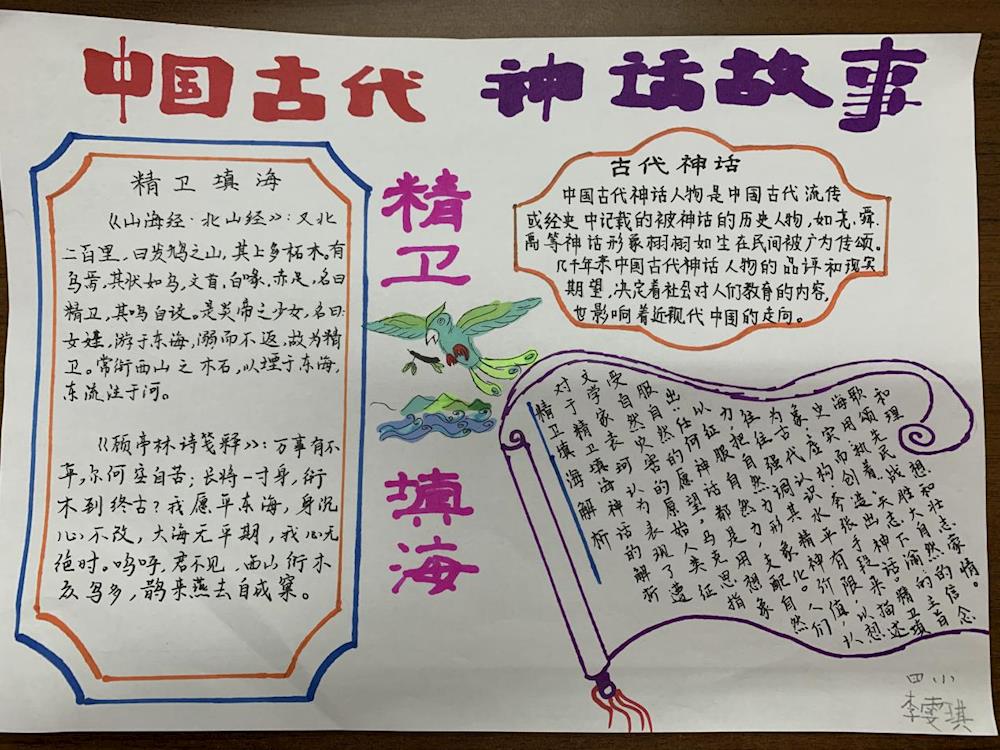 中国古代 神话故事
精卫填海
《山海经·北山经》:又北
二百里,曰发鸠之山,其上多柘木。有
鸟焉,其状如乌,文首,白喙,赤足,名曰
精卫,其鸣自詨。是炎帝之少女,名曰:
女娃,游于东海,溺而不返,故为精
卫。常衔西山之木石,以堙于东海,
东流注于河。
《顾亭林诗笺释》:万事有不
平,尔何空自苦;长将一寸身,衔
木到终古?我愿平东海,身沉
心不改,大海无平期,我心无
绝时。呜呼,君不见,西山衔木
众鸟多,鹊来燕去自成窠。
精卫
填海
古代神话
中国古代神话人物是中国古代流传
或经史中记载的被神话的历史人物,如尧、舜、
禹等神话形象栩栩如生在民间被广为传颂。
几千年来中国古代神话人物的品评和现实
期望,决定着社会对人们教育的内容,
也影响着近现代中国的走向。
精卫填海解析
对于精卫填海神话的解析
文学家袁珂认为表现了遭
受自然灾害的原始人类征
服自然的愿望,
四小
李雯琪